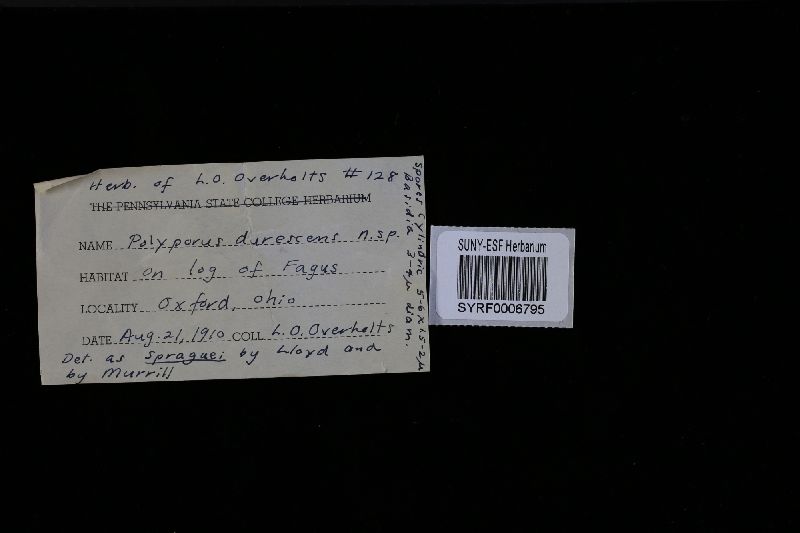 Herb. of L.O. Overholts #128
THE PENNSYLVANIA STATE COLLEGE HERBARIUM
NAME Polyporus durescens n.sp.
HABITAT on log of Fagus
LOCALITY Oxford, Ohio
DATE Aug. 21, 1910 COLL. L.O. Overholts
Det. as Spraguei by Lloyd and
by Murrill
Spores cylindric 5-6 X 1.5-2µ
Basidia 3-4µ diam.
SUNY-ESF Herbarium
SYRF0006795